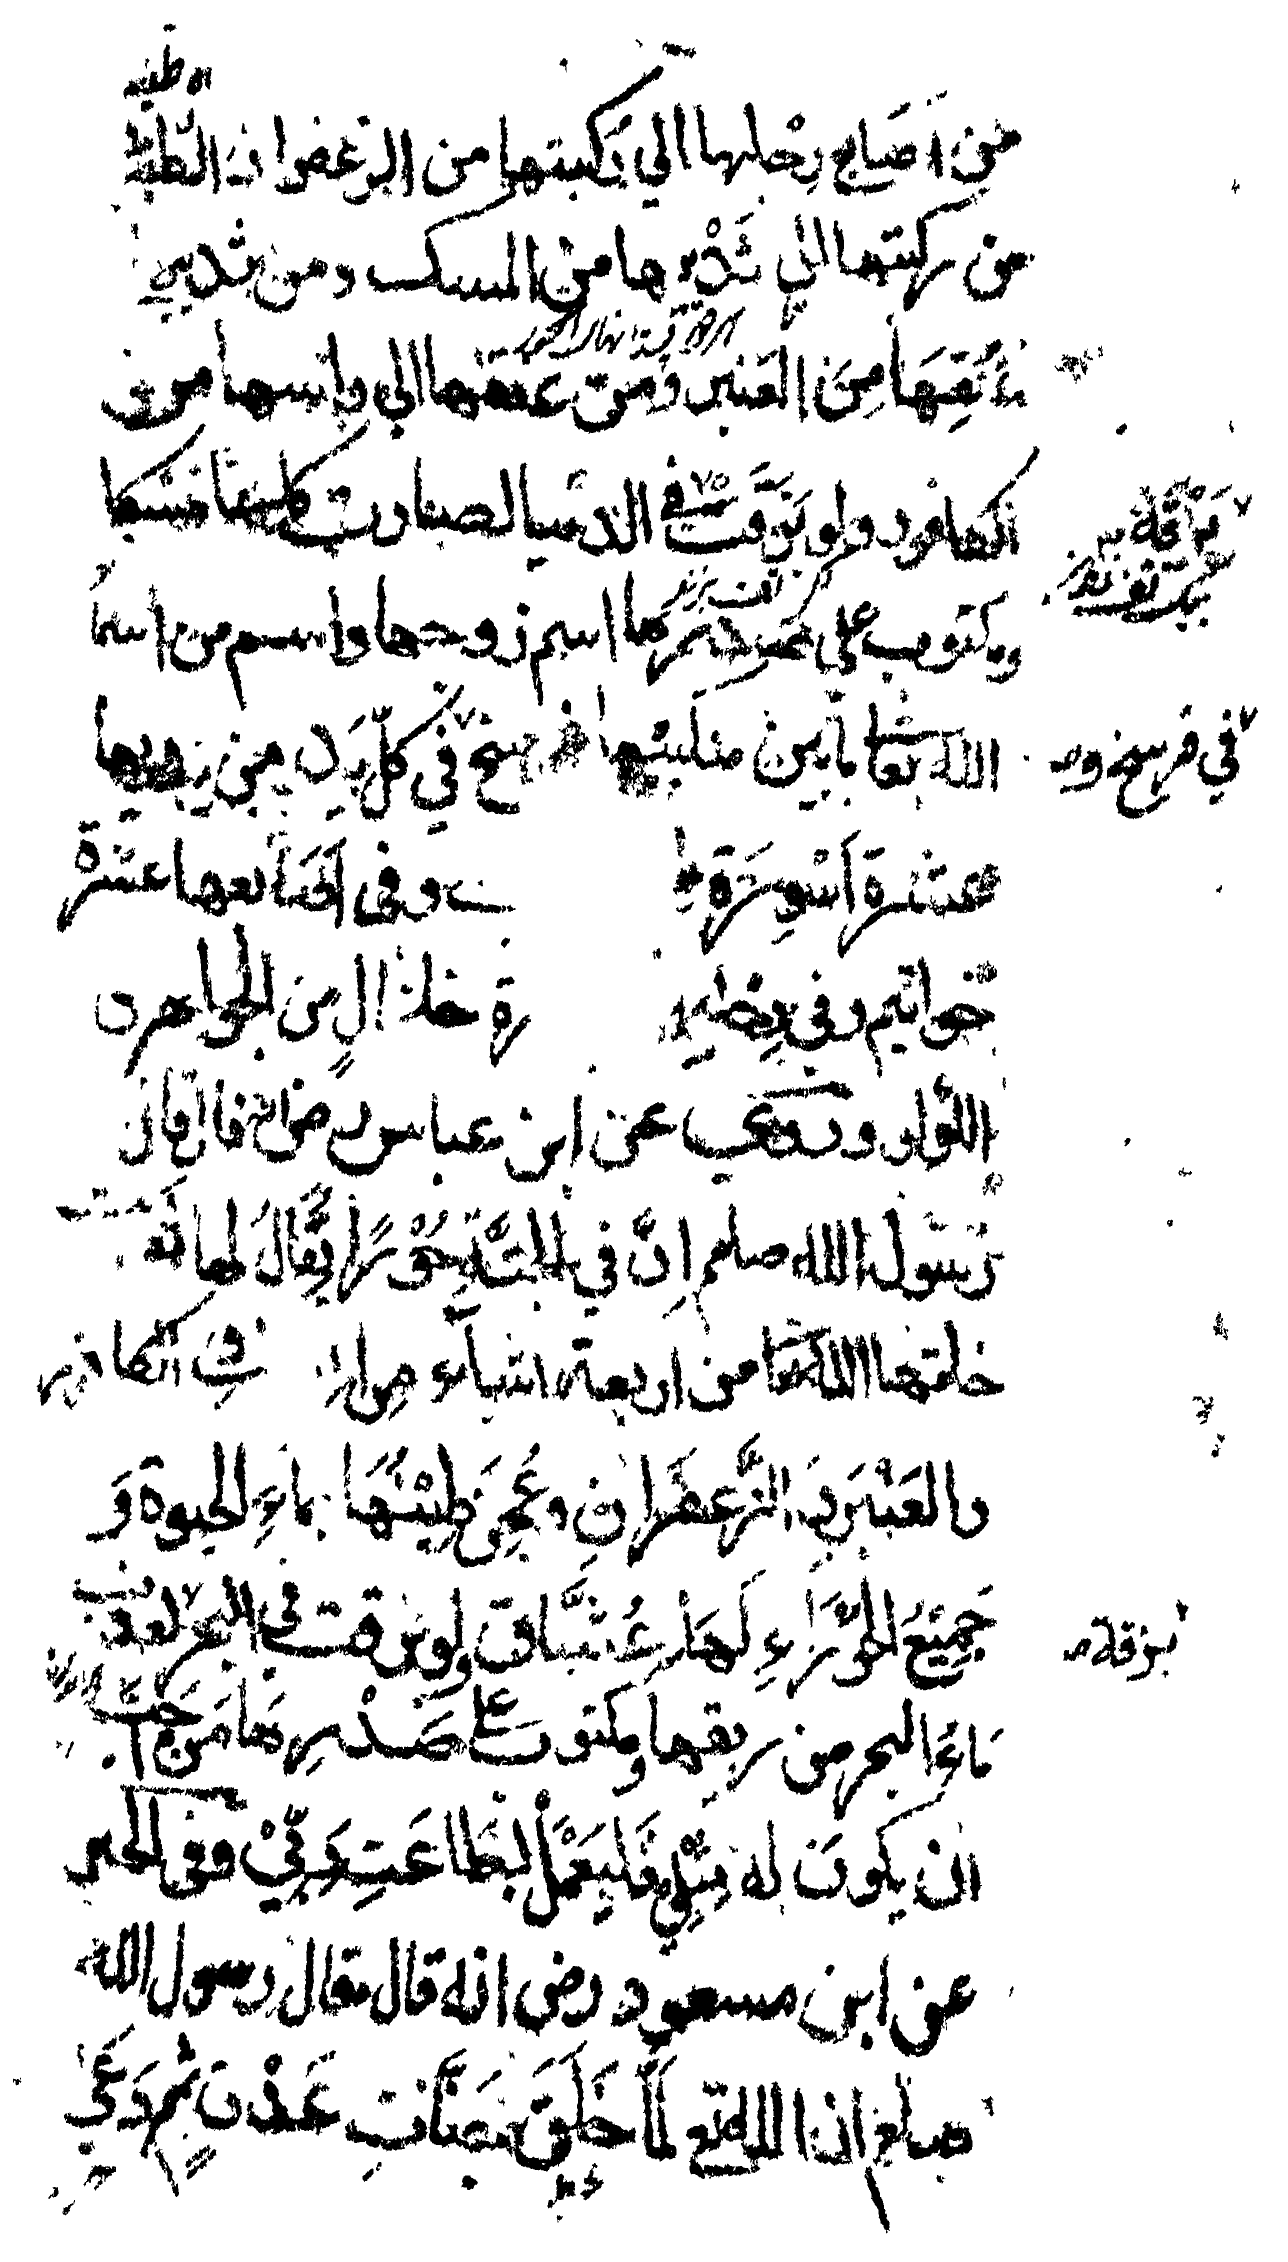 من اصابع رجلها الي ركبتها من الزعفران الطيب
من ركبتها الي ثديها من المسك ومن ثديي
عنقها من العنبر ومن عنقها الي راسها من
الكافور ولو بزقت في الدنيا لصارت كلها مسكا
ومكتوب علي صدرها اسم زوجها واسم من اسما
الله تعا ما بين منكبيها فرسخ في كل يد من يديها
في فرسخ وص
عشرة اسورة وفي اصابعها عشرة
خواتيم وفي رجليها رة خلخال من الجواهر و
اللؤلؤ وروي عن ابن عباس رض انه قال قال
رسول الله صلعم ان في الجنة حورا يقال لها لعبة
خلقها الله تعا من اربعة اشياء من الكافور
والعنبر والزعفران وعجن طينتها بماء الحيوة و
جميع الحوراء لها عشاق ولو بزقت في البحر لعذب
بزقة ص
ماء البحر من ريقها ومكتوب علي صدرها من احب
ان يكون له مثلي فليعمل بطاعت ربي وفي الخبر
عن ابن مسعود رض انه قال قال رسول الله
صلعم ان الله تع لما خلق جنات عدن ثم دعي